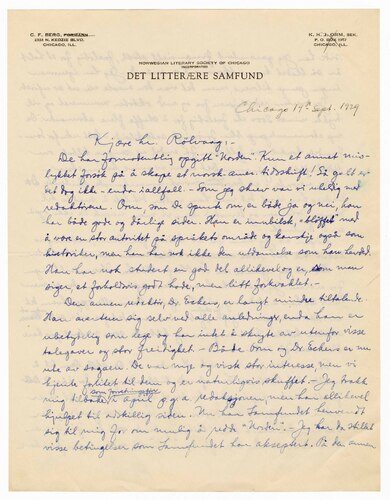 C. F. BERG, FORMANN
2334 N. KEDZIE BLVD.
CHICAGO, ILL.
K. N. J. ORM, SEK.
P. O. BOX 1357
CHICAGO, ILL.
NORWEGIAN LITERARY SOCIETY OF CHICAGO
INCORPORATED
DET LITTERÆRE SAMFUND
Chicago 19th Sept. 1929
Kjære hr. Rölvaag:-
De har formodentlig opgitt "Norden". Kun et annet mis-
lykket forsøk på å skape et norsk-amer. tidsskrift! Så galt er
det dog ikke - enda iallfall. - Som jeg skrev var vi uheldig med
redaktørene. Orm, som De spurte om, er både ja og nei, han
har både gode og dårlige sider. Han er innbilsk, "bløffet" med
å være en stor autoritet på sprogets område og kanskje også som
historiker, men han har nok ikke den utdannelse som han hevdet.
Han har nok studert en god del allikevel og er, som men
siger, et forholdsvis godt hode, men litt forkvaklet. -
Den annen redaktør, Dr. Eckers, er langt mindre tiltalende.
Han averterer sig selv ved alle anledninger, enda han er
ubetydelig som lege og har intet å skryte av utenfor visse
talegaver og stor freidighet. - Både Orm og Dr. Eckers er nu
ute av sagaen. De var ivrige og viste stor interesse, men vi
kjente for litet til dem og er naturligvis skuffet. - Jeg trakk
som forretningsfører
mig tilbake i april p.g.a. redaksjonen, men har allikevel
hjulpet til adskillig siden. Nu har Samfundet henvendt
sig til mig for om mulig å redde "Norden". - Jeg har da stillet
visse betingelser som Samfundet har akseptert. På den annen